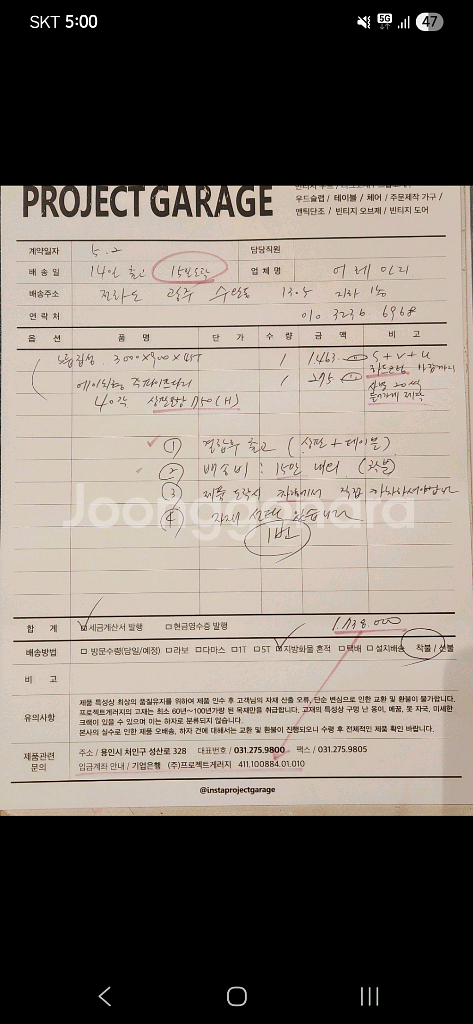 SKT 5:00
5G 47
PROJECT GARAGE
우드슬랩 / 테이블 / 체어 / 주문제작 가구 /
앤틱단조 / 빈티지 오브제 / 빈티지 도어
계약일자 5.2 담당직원
배송일 14일 출고 15일도착 업체명
배송주소 전라도 광주 1층
연락처 010 3236 6968
옵션 품명 단가 수량 금액 비고
1 1,463 S + V + U
1 275
40각
① 결합후 출고 (상판 + 테이블)
② 배송비 : 15만 내외 (착불)
③ 제품 도착시 직접 하차하셔야합니다
④ 자재 선택 있습니다
1번
Joonggonara
합계 세금계산서 발행 현금영수증 발행 1,738,000
배송방법 방문수령(당일/예정) 라보 다마스 1T 5T 지방화물 혼적 택배 설치배송 착불 / 선불
비고
유의사항
제품 특성상 최상의 품질유지를 위하여 제품 인수 후 고객님의 자재 산출 오류, 단순 변심으로 인한 교환 및 환불이 불가합니다.
프로젝트게러지의 고재는 최소 60년~100년가량 된 목재만을 취급합니다. 고재의 특성상 구멍 난 옹이, 메꿈, 못 자국, 미세한
크랙이 있을 수 있으며 이는 하자로 분류되지 않습니다.
본사의 실수로 인한 제품 오배송, 하자 건에 대해서는 교환 및 환불이 진행되오니 수령 후 전체적인 제품 확인 바랍니다.
제품관련 문의
주소 / 용인시 처인구 성산로 328 대표번호 / 031.275.9800 팩스 / 031.275.9805
입금계좌 안내 / 기업은행 (주)프로젝트게러지 411.100884.01.010
@instaprojectgarage